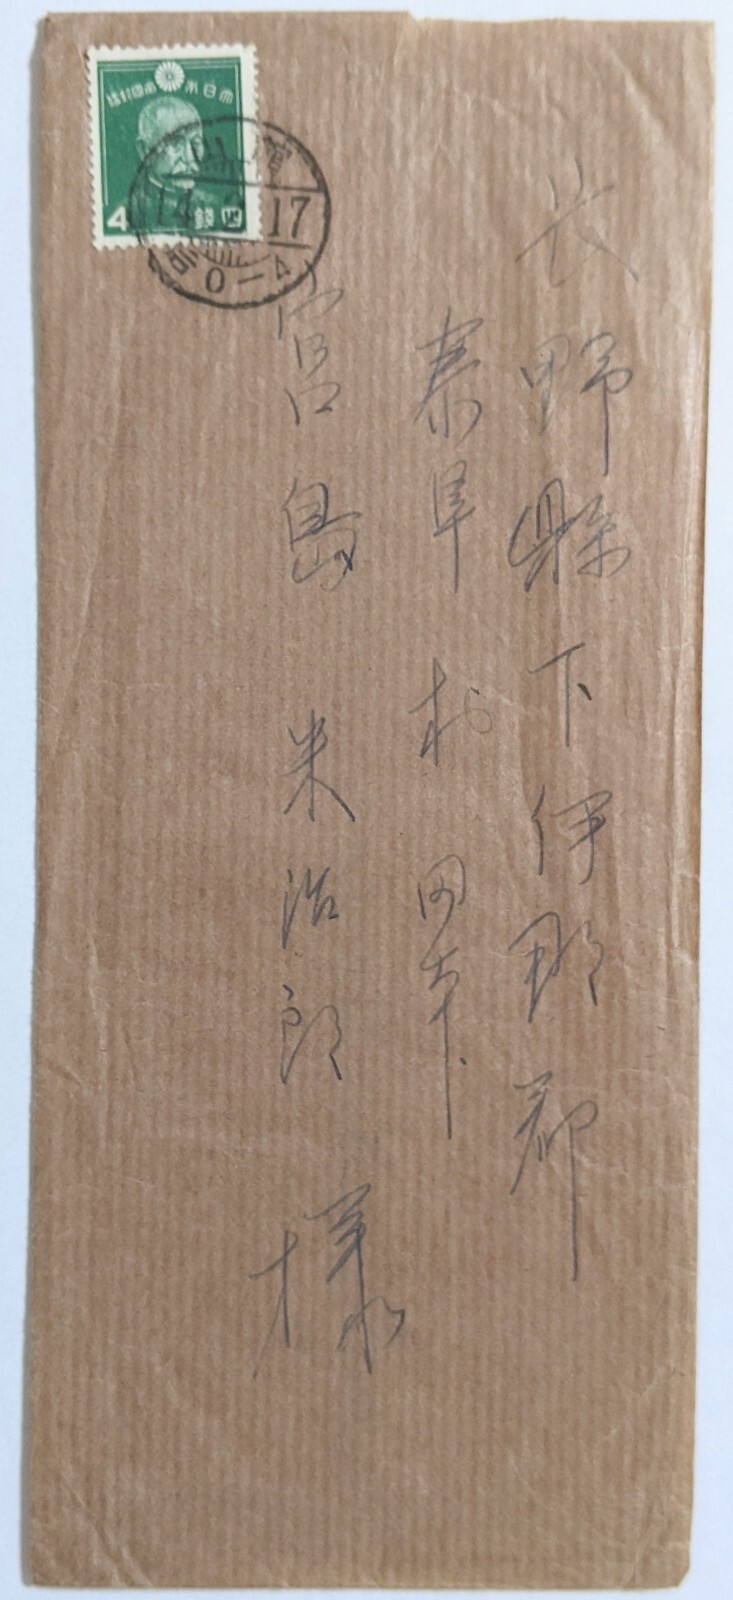 長野縣下伊那郡
泰阜村田本
宮島米治郎様
大日本帝國郵便
4 四錢
14 17
0-4